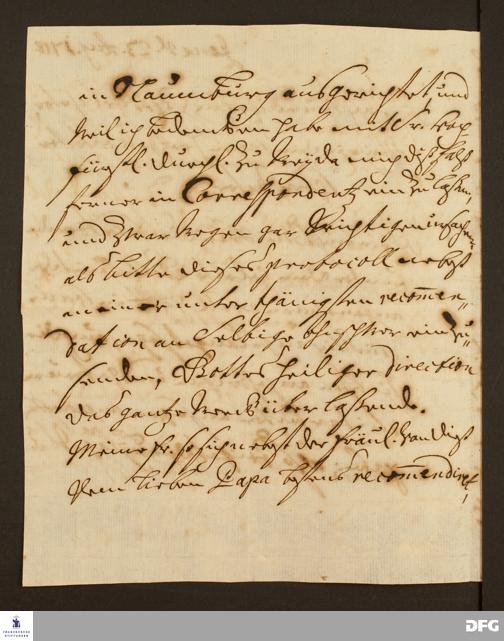 in Naumburg ausgerichtet, und
weil ich bedencken habe mit Sr. Hoch
fürstl. Durchl. zu mich dißfals
ferner in Correspondentz ein zu laßen,
und zwar wegen gar wichtigen ursachen
als bitte dieses protocoll nebst
meiner unter thänigsten recom̄en„
dation an Selbige ein zu„
senden, Gottes heiliger direction
das gantze werck über laßende.
Meine fr. so sich nebst der fräul. von
dem lieben Papa bestens recom̄endiret,
FRANCKESCHE
STIFTUNGEN
DFG